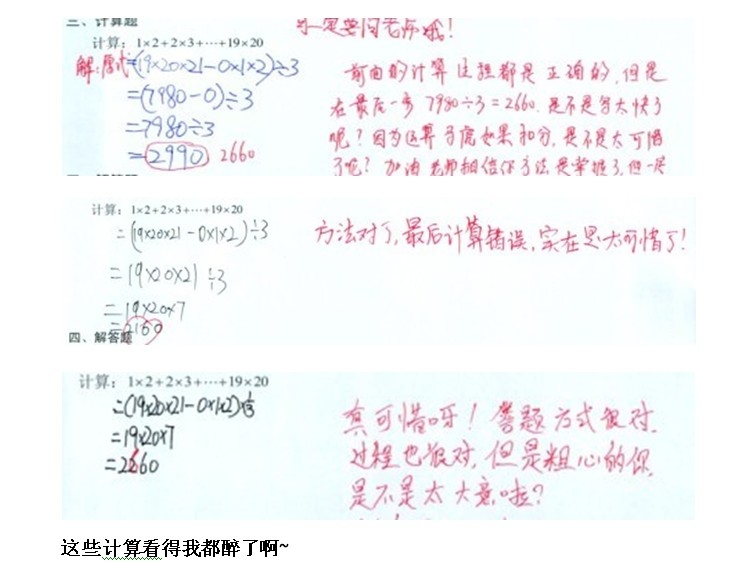 三、计算题
不一定要问老师哦!
计算: 1×2+2×3+…+19×20
解:原式=(19×20×21-0×1×2)÷3
=(7980-0)÷3
=7980÷3
=2990 2660
前面的计算过程都是正确的,但是
在最后一步 7980÷3=2660.是不是写太快了
呢?因为运算马虎如果扣分,是不是太可惜
了呢?加油 老师相信你方法是掌握了,但一定
计算: 1×2+2×3+…+19×20
=(19×20×21-0×1×2)÷3
=19×20×21÷3
=19×20×7
=2160
方法对了,最后计算错误,实在是太可惜了!
四、解答题
计算: 1×2+2×3+…+19×20
=(19×20×21-0×1×2)×1/3
=19×20×7
=2660
真可惜呀!答题方式很对.
过程也很对,但是粗心的你,
是不是太大意啦?
这些计算看得我都醉了啊~